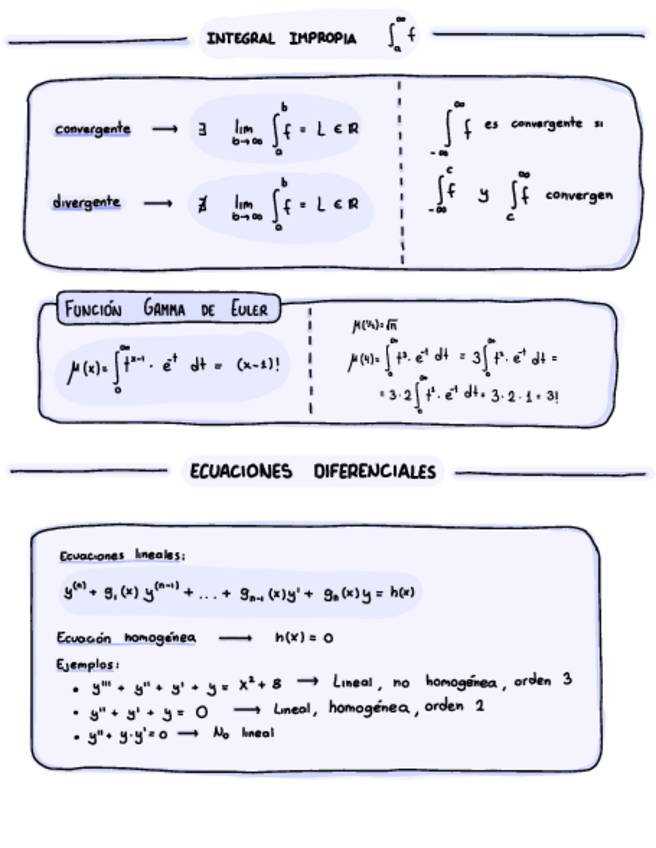 INTEGRAL IMPROPIA ∫ₐ^∞ f
convergente → ∃ lim b→∞ ∫ₐ^b f = L ∈ ℝ
divergente → ∄ lim b→∞ ∫ₐ^b f = L ∈ ℝ
∫₋∞^∞ f es convergente si
∫₋∞^c f y ∫_c^∞ f convergen
FUNCIÓN GAMMA DE EULER
μ(x) = ∫₀^∞ t^(x-1) · e^(-t) dt = (x-1)!
μ(4) = ∫₀^∞ t³ · e^(-t) dt = 3∫₀^∞ t² · e^(-t) dt =
= 3·2∫₀^∞ t¹ · e^(-t) dt = 3·2·1 = 3!
ECUACIONES DIFERENCIALES
Ecuaciones lineales:
y^(n) + g₁(x) y^(n-1) + ... + gₙ₋₁(x)y' + gₙ(x)y = h(x)
Ecuación homogénea → h(x) = 0
Ejemplos:
• y''' + y'' + y' + y = x² + 8 → Lineal, no homogénea, orden 3
• y'' + y' + y = 0 → Lineal, homogénea, orden 2
• y'' + y·y' = 0 → No lineal